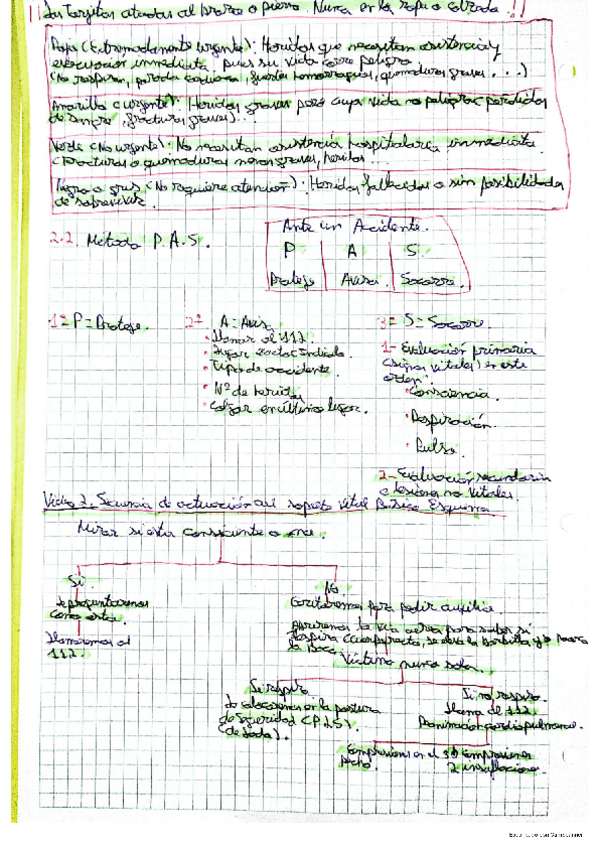 Las Tarjetas atadas al brazo o pierna. Nunca en la ropa o calzado!!
Roja (Extremadamente urgente): Heridos que necesitan asistencia y
evacuación inmediata, pues su vida corre peligro.
(No respiran, parada cardiaca, fuertes hemorragias, quemaduras graves...)
Amarilla (urgente): Heridos graves pero cuya vida no peligra (pérdidas
de sangre, fracturas graves)...
Verde (No urgente): No necesitan asistencia hospitalaria inmediata
(Fracturas o quemaduras menos graves, heridas...
Negra o gris (No requiere atención): Heridos fallecidos o sin posibilidades
de sobrevivir.
2.2. Método P.A.S.
Ante un Accidente.
P A S
Protege Avisa Socorre.
1º P = Protege.
2º A = Avisa
• Llamar al 112.
• Lugar exacto
• Tipo de accidente.
• Nº de heridos
Colgar en último lugar.
3º S = Socorre.
1- Evaluación primaria
(signos vitales) en este
orden:
• Consciencia.
• Respiración.
• Pulso.
2- Evaluación secundaria
o lesiones no vitales.
Secuencia de actuación del soporte Vital Básico Esquema
Mirar si está consciente o no.
Si.
Le preguntaremos
como está.
Llamaremos al
112.
No
Gritaremos para pedir auxilio.
Abriremos la vía aérea para saber si
respira
la boca.
Víctima nunca sola.
Si respira
Lo colocamos en la postura
de seguridad (P.L.S).
(de lado).
Si no respira.
Llama al 112
Reanimación cardiopulmonar.
Compresiones en el
pecho.
30 compresiones
2 insuflaciones.